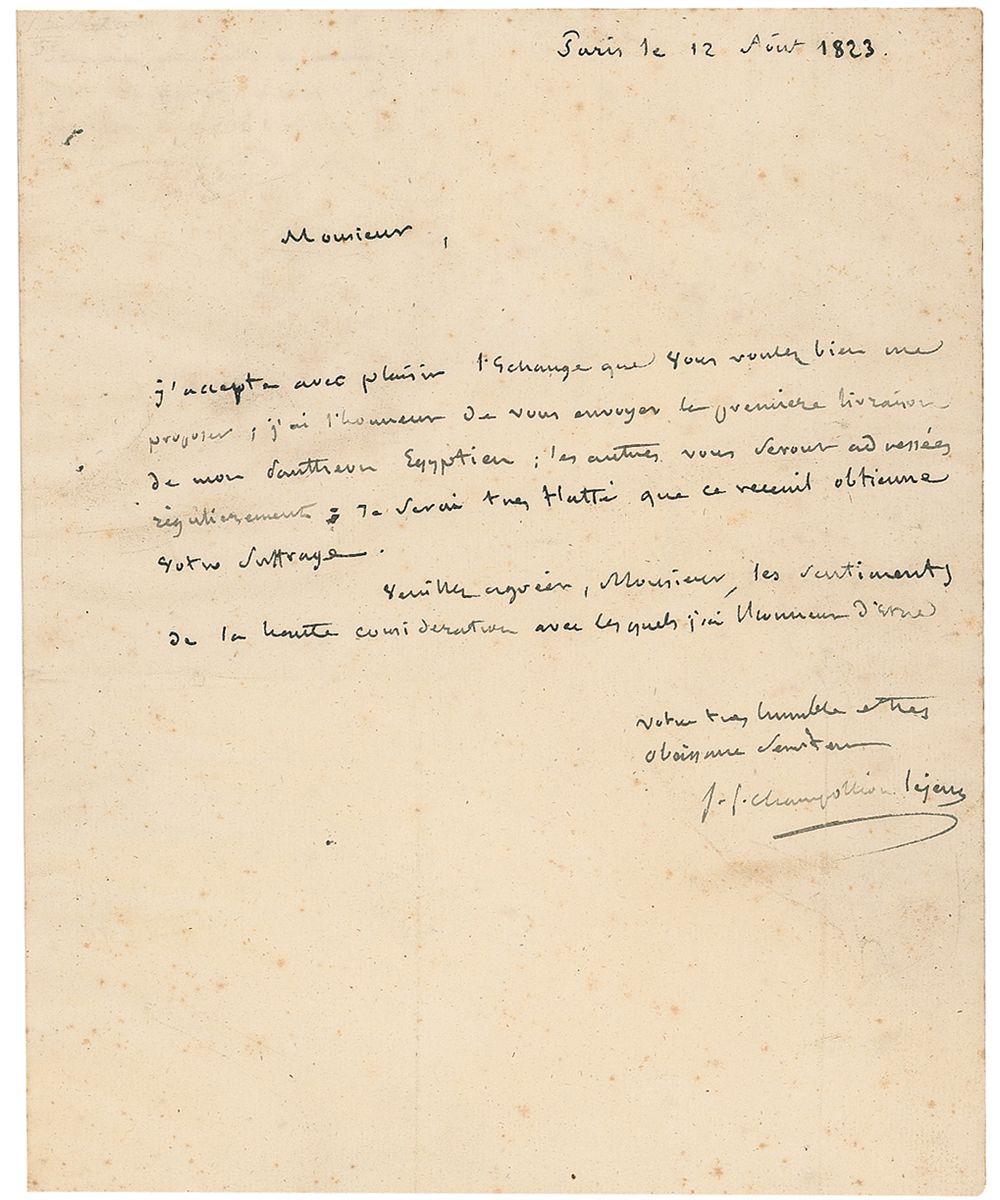 Paris le 12 Août 1823.
Monsieur,
j'accepte avec plaisir l'Echange que vous voulez bien me
proposer ; j'ai l'honneur de vous envoyer la premiere livraison
de mon Panthéon Egyptien ; les autres vous seront adressées
régulierement ; Je serai tres flatté que ce receuil obtienne
votre suffrage.
Veuillez agréer, Monsieur, les sentiments
de la haute consideration avec lesquels j'ai l'honneur d'etre
votre tres humble et tres
obeissant serviteur
J. f. Champollion le jeune